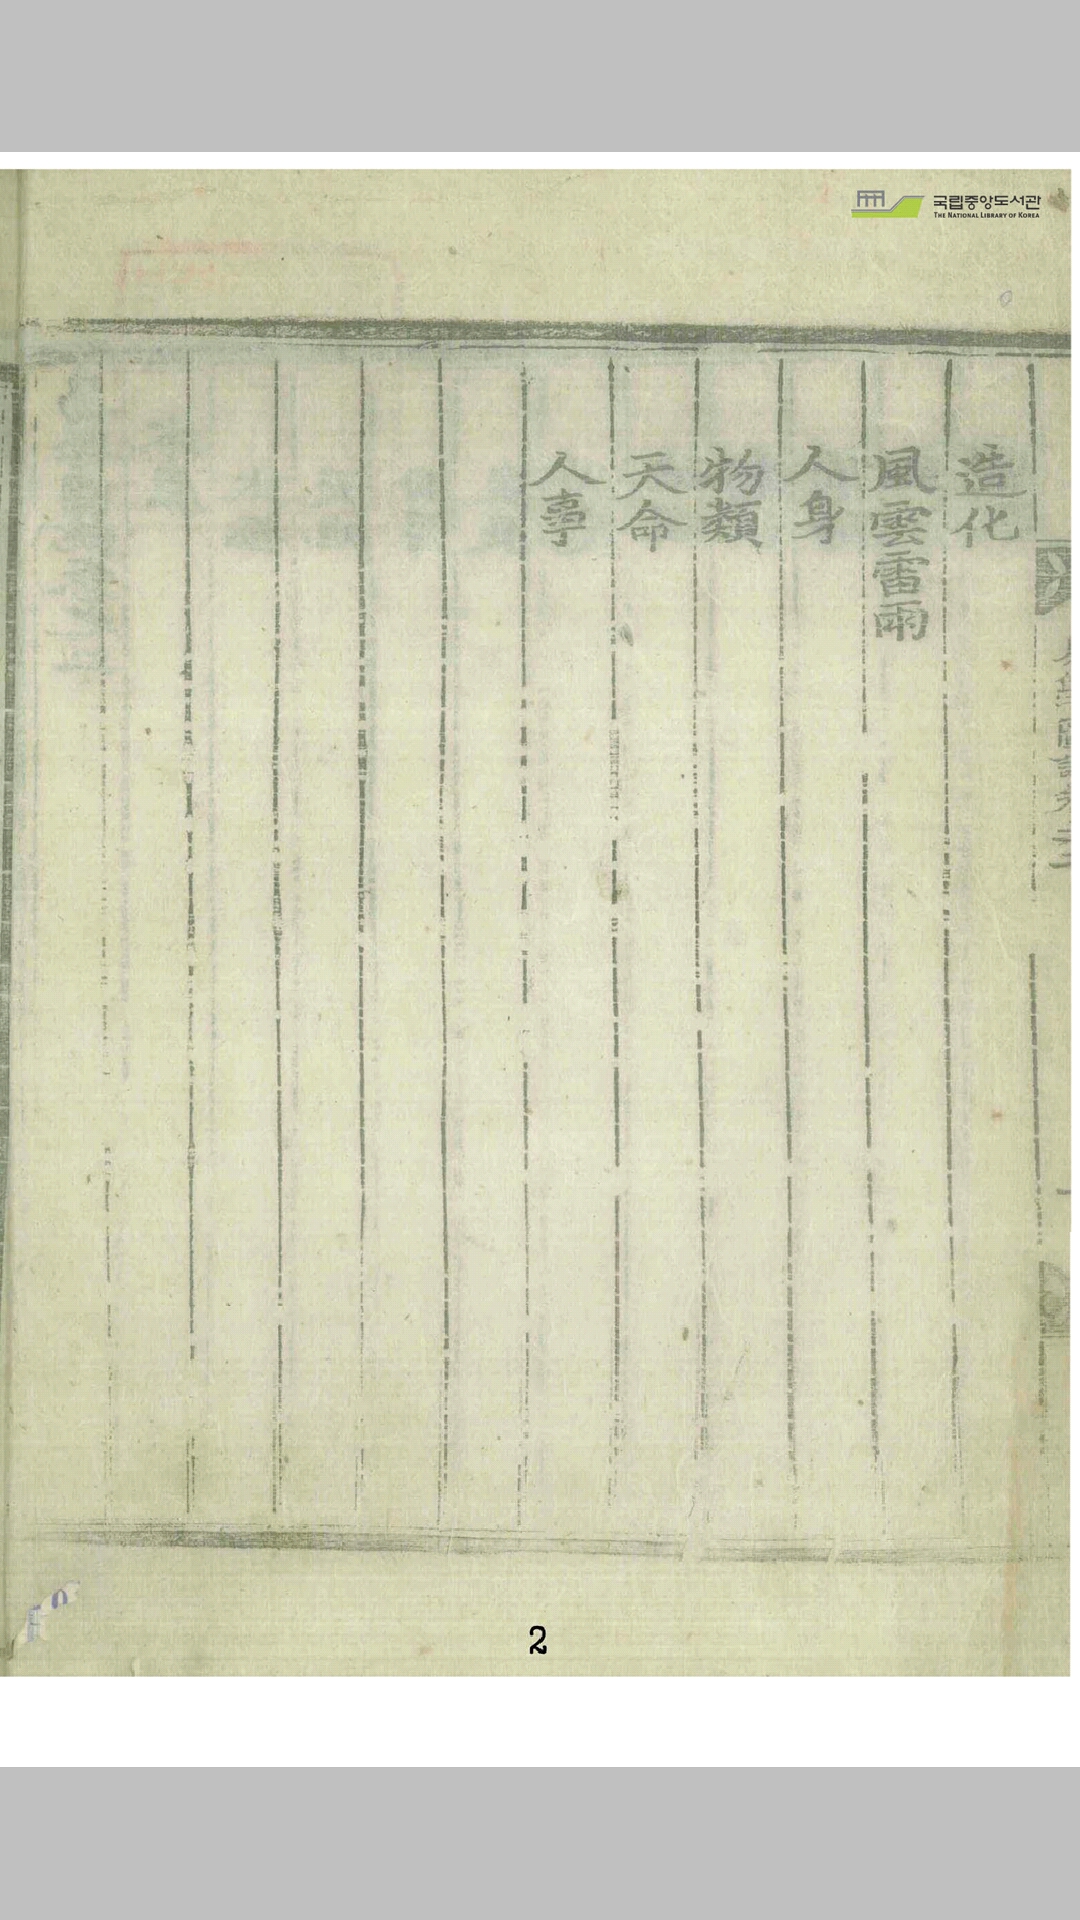 국립중앙도서관
THE NATIONAL LIBRARY OF KOREA
造化
風雲雷雨
人身
物類
天命
人事
2